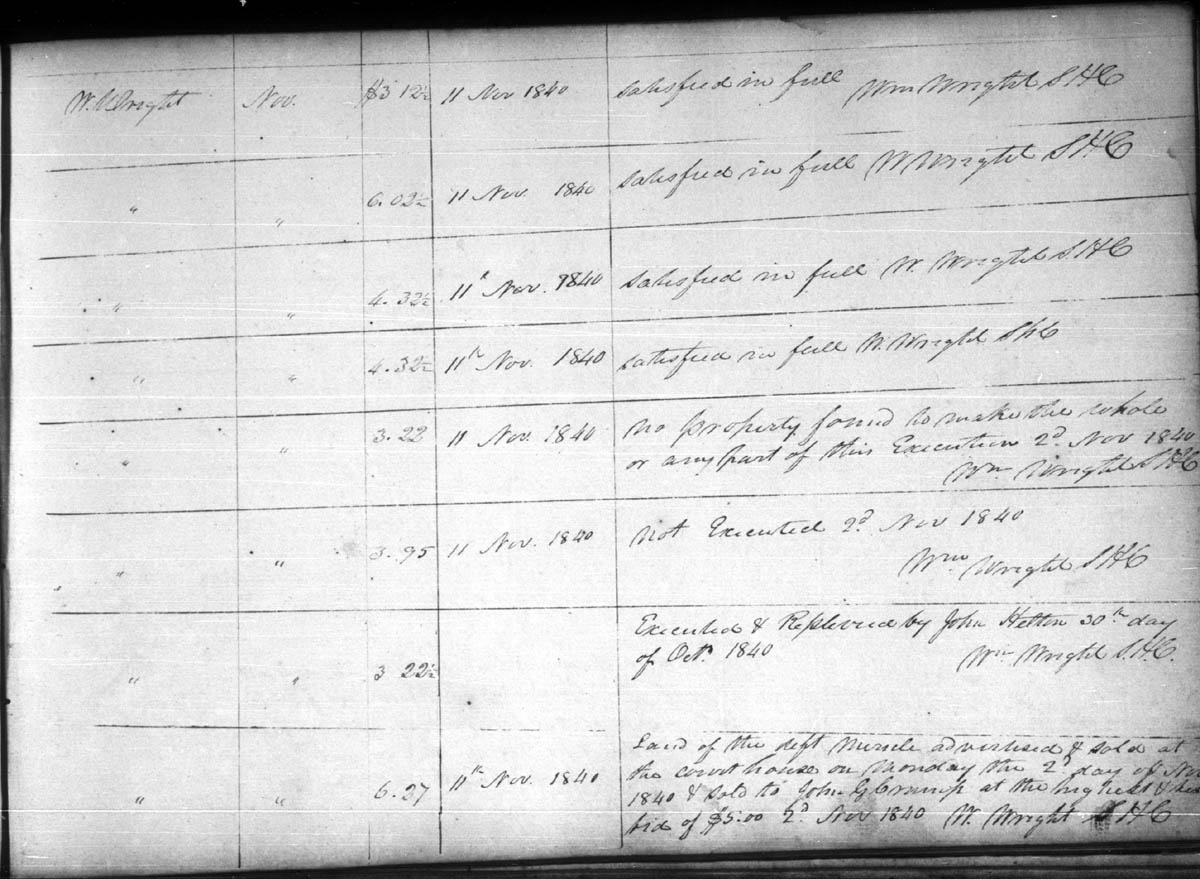 W. Wright Nov. $3 12½ 11 Nov 1840 satisfied in full Wm Wright S.H.C
" " 6.02½ 11 Nov. 1840 satisfied in full W Wright S.H.C
" " 4.32½ 11th Nov. 1840 satisfied in full W. Wright S.H.C
" " 4.32½ 11th Nov. 1840 satisfied in full W. Wright S.H.C
" " 3.22 11 Nov. 1840 No property found to make the whole
or any part of this Execution 2d Nov 1840
Wm Wright S.H.C
" " 3.95 11 Nov. 1840 Not Executed 2d Nov 1840
Wm Wright S.H.C
" " 3 22½ Executed & Replevied by John 30th day
of Oct. 1840 Wm Wright S.H.C.
" " 6.27 11th Nov. 1840 Land of the deft advertised & sold at
the court house on Monday the 2d day of Nov
1840 & sold to John G Crump at the highest &
bid of $5.00 2d Nov 1840 W. Wright S.H.C